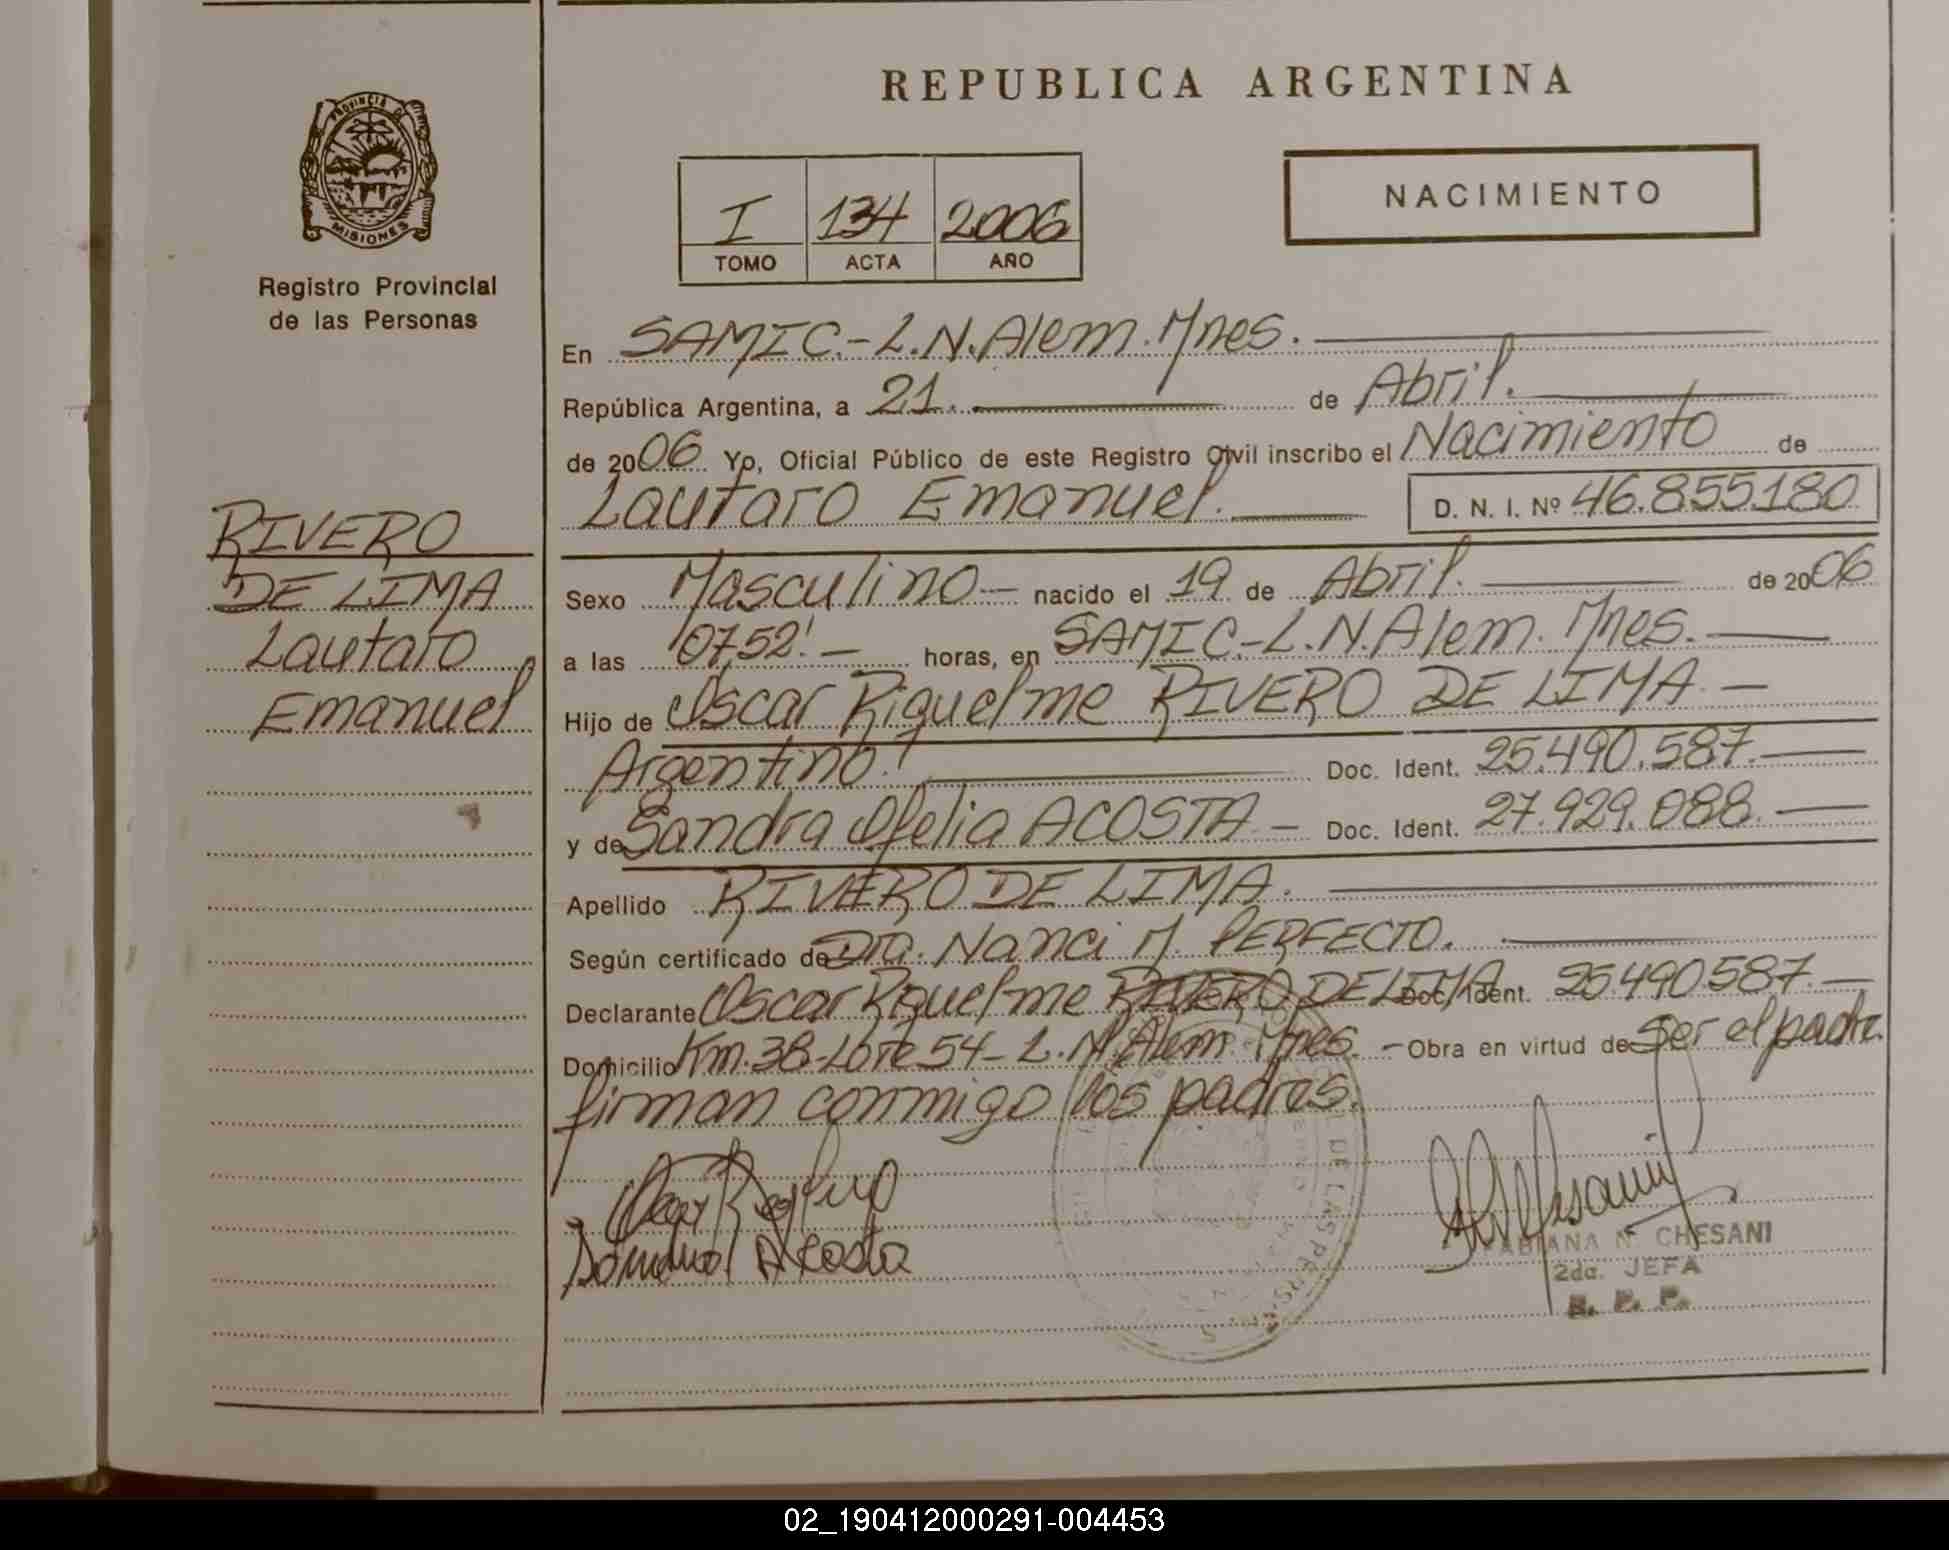 REPUBLICA ARGENTINA
PROVINCIA DE
MISIONES
Registro Provincial
de las Personas
I 134 2006
TOMO ACTA AÑO
NACIMIENTO
En SAMIC.-L.N.Alem.Mnes.
República Argentina, a 21. de Abril.
de 2006 Yo, Oficial Público de este Registro Civil inscribo el Nacimiento de
Lautaro Emanuel. D. N. I. Nº 46.855.180
RIVERO
DE LIMA
Lautaro
Emanuel
Sexo Masculino- nacido el 19 de Abril. de 2006
a las 07,52'.- horas, en SAMIC.-L.N.Alem. Mnes.
Hijo de Oscar Riquelme RIVERO DE LIMA.-
Argentino. Doc. Ident. 25.490.587.-
y de Sandra Ofelia ACOSTA.- Doc. Ident. 27.929.088.-
Apellido RIVERO DE LIMA.
Según certificado de Dra. Nanci M. PERFECTO.
Declarante Oscar Riquelme RIVERO DE LIMA Doc. Ident. 25.490.587.-
Domicilio Km.38-Lote 54-L.N.Alem. Mnes. - Obra en virtud de Ser el padre.
firman conmigo los padres.
Sandra Acosta
FABIANA N. CHESANI
2da. JEFA
R. P. P.
DE LAS PERSONAS
02_190412000291-004453